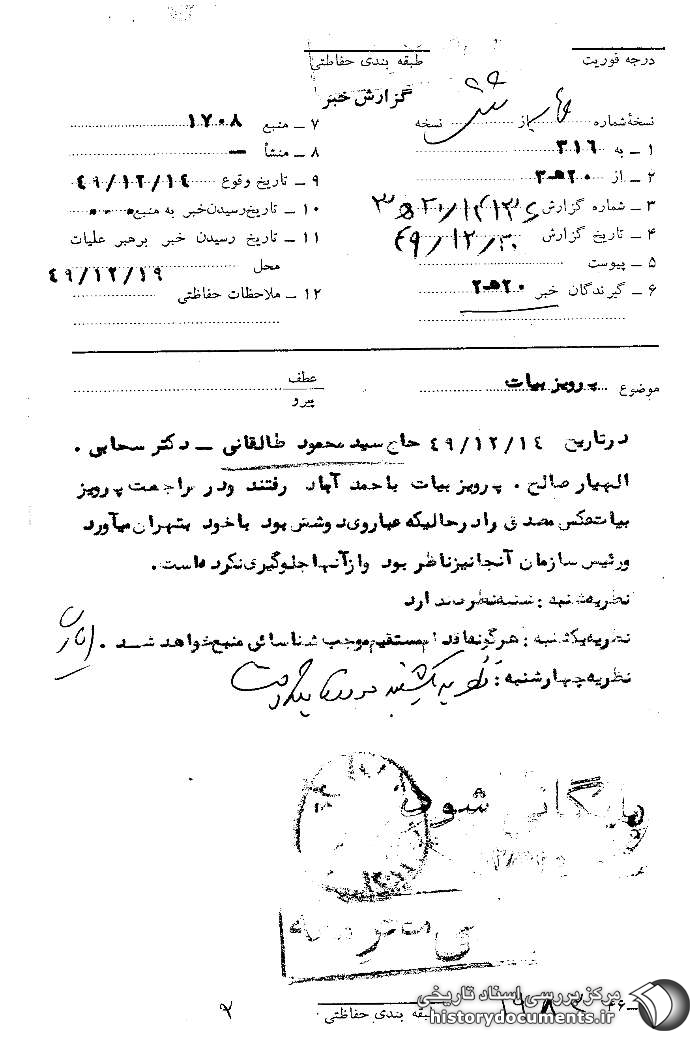 درجه فوریت
طبقه بندی حفاظتی
گزارش خبر
نسخهٔ شماره از نسخه
۱ ـ به ۳۱۶
۲ ـ از ۲۰ه‍۳
۳ ـ شماره گزارش
۴ ـ تاریخ گزارش ۴۹/۱۲/۲۰
۵ ـ پیوست
۶ ـ گیرندگان خبر ۲۰ه‍۲
۷ ـ منبع ۱۷۰۸
۸ ـ منشأ ـ
۹ ـ تاریخ وقوع ۴۹/۱۲/۱۴
۱۰ ـ تاریخ رسیدن خبر به منبع
۱۱ ـ تاریخ رسیدن خبر برهبر علیات
محل ۴۹/۱۲/۱۹
۱۲ ـ ملاحظات حفاظتی
موضوع پرویز بیات
عطف
پیرو
درتاریخ ۴۹/۱۲/۱۴ حاج سید محمود طالقانی ـ دکتر سحابی .
الهیار صالح . پرویز بیات باحمد آباد رفتند ودر مراجعت پرویز
بیات عکس مصدق را درحالیکه عباروی دوشش بود باخود بتهران میآورد
ورئیس سازمان آنجا نیز ناظر بود وازآنها جلوگیری نکرده است.
نظریه شنبه : شنبه نظر ندارد
نظریه یکشنبه : هرگونه اقدام مستقیم موجب شناسائی منبع خواهد شد .
نظریه چهارشنبه : نظریه یکشنبه مورد تایید است
بایگانی شود
طبقه بندی حفاظتی
۲
مرکز بررسی اسناد تاریخی
historydocuments.ir